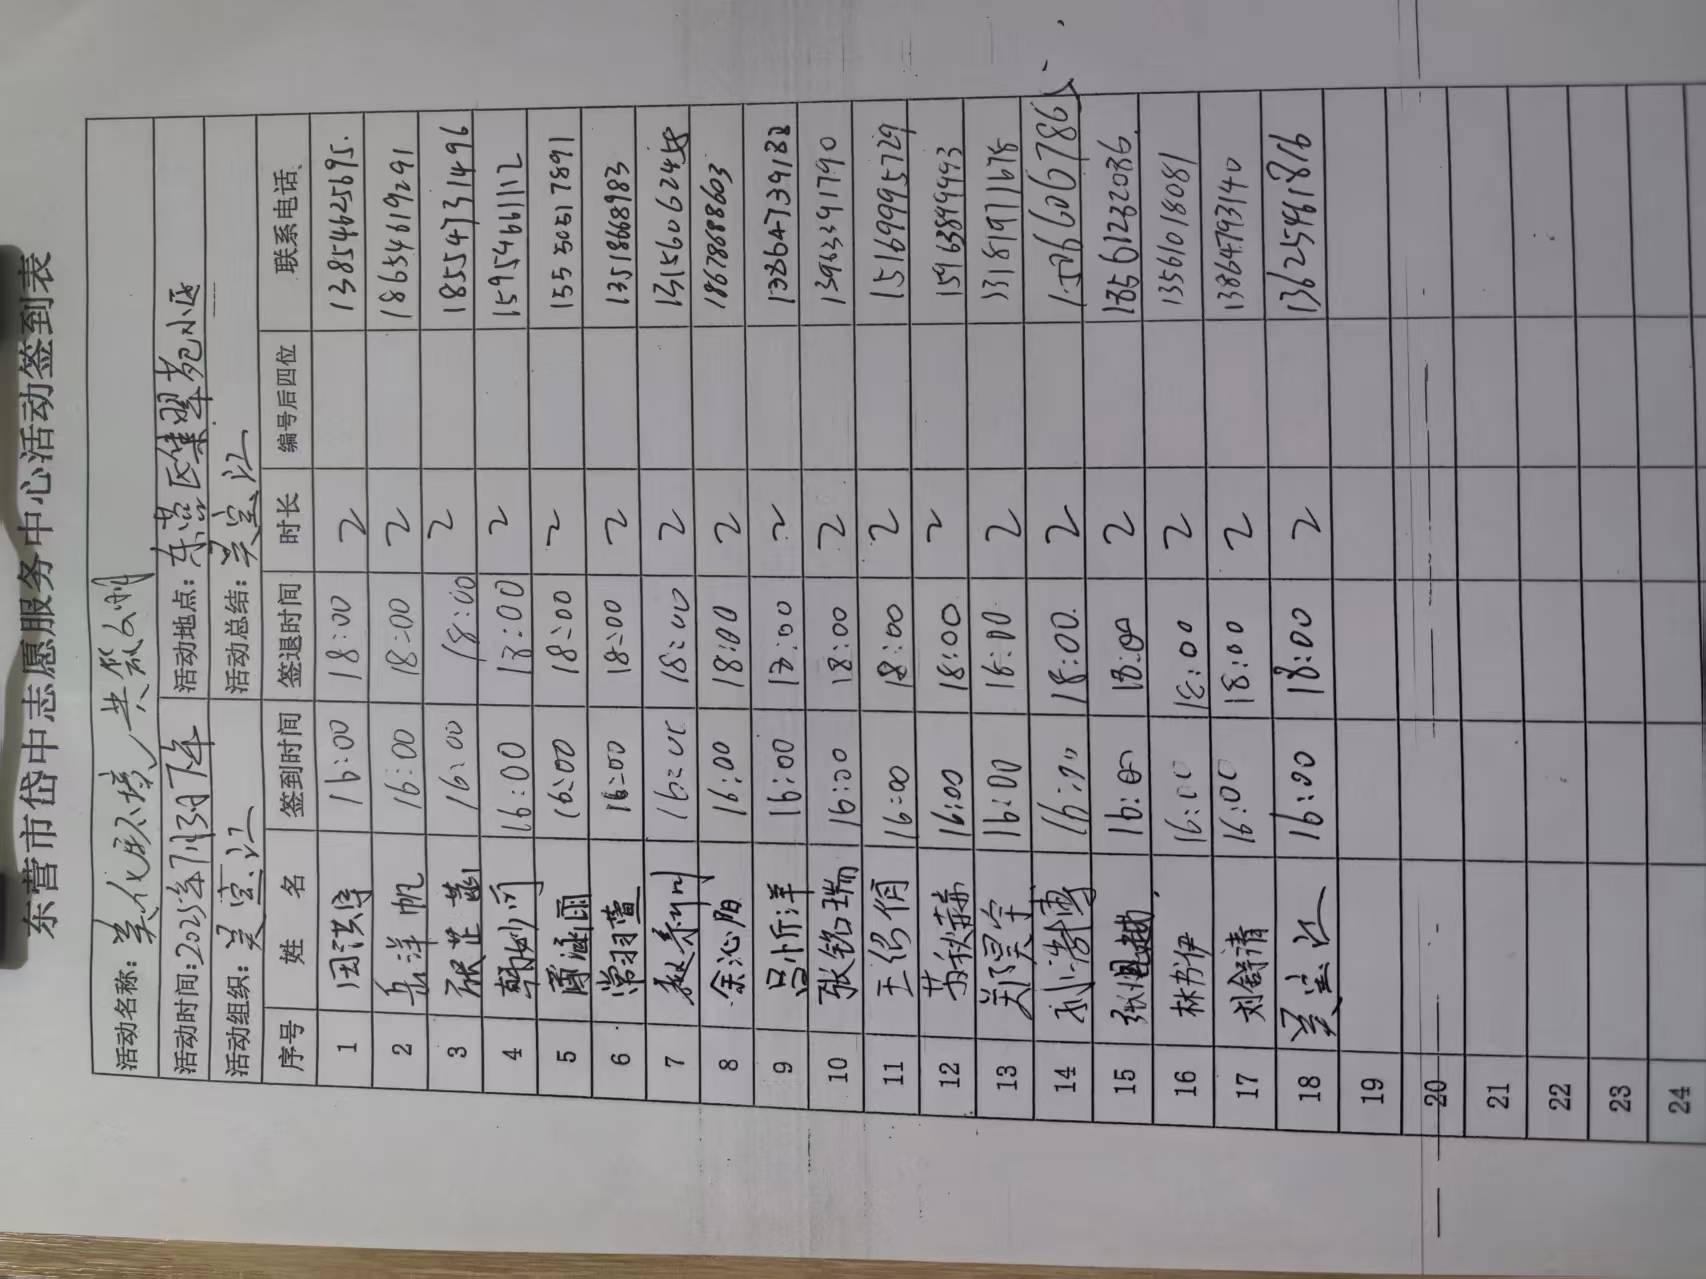 东营市岱中志愿服务中心活动签到表
活动名称：美化环境，共筑文明
活动时间：2025年 下午 活动地点：东营区集翠苑小区
活动组织：吴宝江 活动总结：吴宝江
序号 姓名 签到时间 签退时间 时长 编号后四位 联系电话
1 田洪 16:00 18:00 2 13854625695
2 岳洋帆 16:00 18:00 2 18654619291
3 张芷菡 16:00 18:00 2 18554731496
4 韩 16:00 18:00 2 15954661112
5 涵雨 16:00 18:00 2 15550517891
6 常羽萱 16:00 18:00 2 13518668983
7 赵 16:00 18:00 2
8 余沁阳 16:00 18:00 2 18678688603
9 吕忻洋 16:00 18:00 2
10 张铭瑞 16:00 18:00 2
11 王 16:00 18:00 2 15169995729
12 苏秋赫 16:00 18:00 2
13 郑昊宇 16:00 18:00 2
14 刘 16:00 18:00 2
15 张 越 16:00 18:00 2 18561232086
16 林书伊 16:00 18:00 2 13561018081
17 刘舒清 16:00 18:00 2 13864793140
18 吴宝江 16:00 18:00 2 13625461816
19
20
21
22
23
24